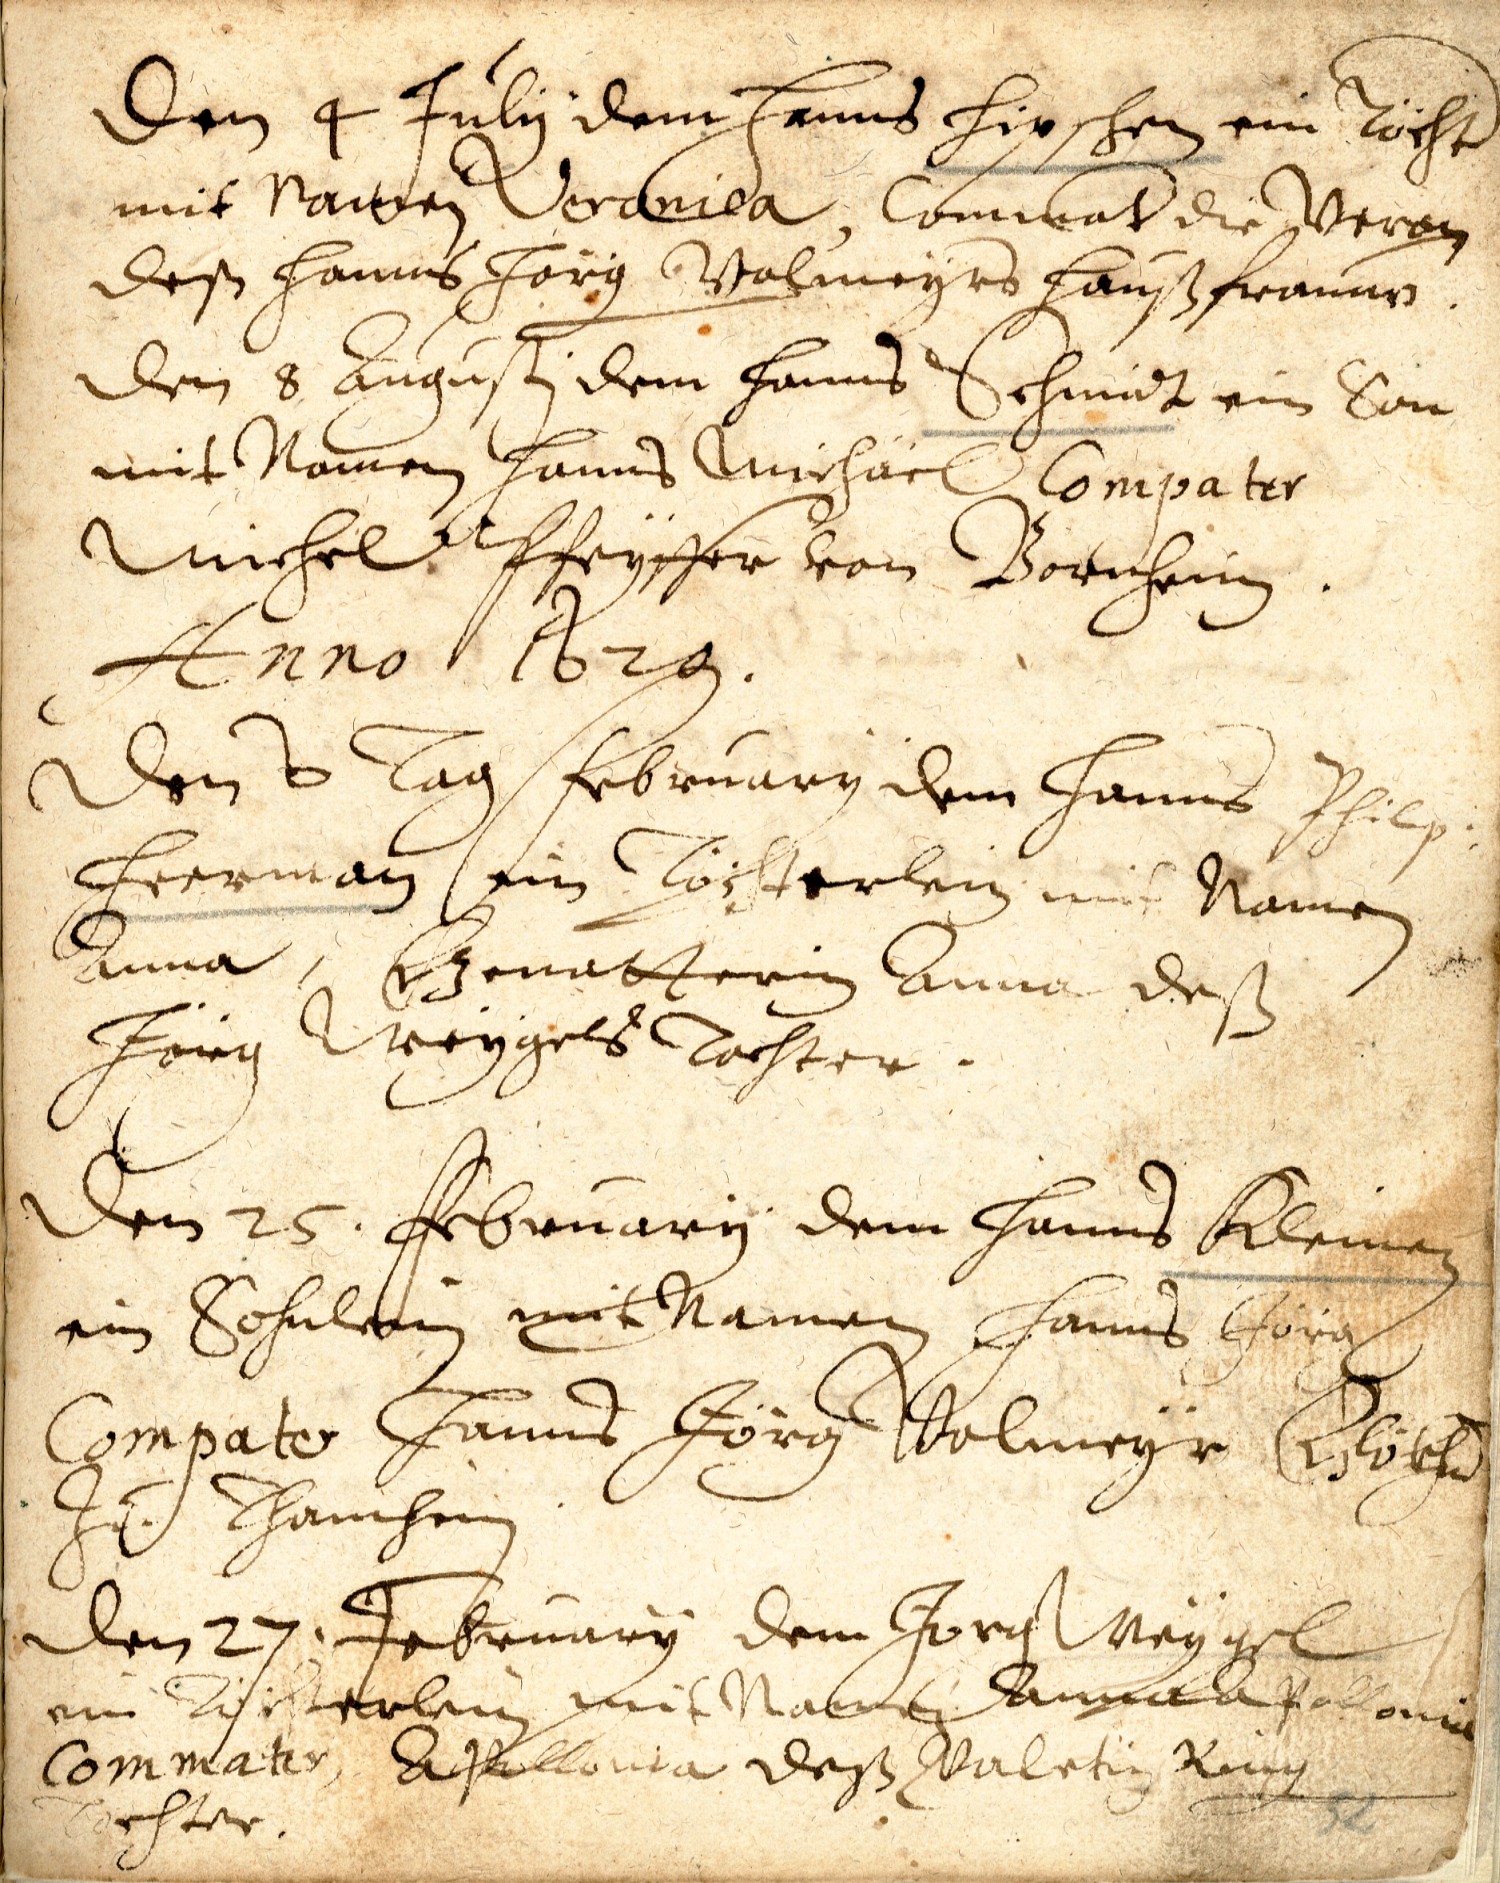 Den 4 Julÿ dem Hanns Hipschen ein Töcht
mit Namen Veronica, Commat die Veron
deß Hanns Jörg Volmeÿrs Haußfrauw.
Den 8 Augustj dem Hanns Schmidt ein Son
mit Namen Hanns Michäel Compater
Michel Pfeÿffer von Bornheim.
Anno 1629.
Den 6 Tag February dem Hanns Philp:
Heerman ein Töchterlein mit Namen
Anna, Gevatterin Anna deß
Jörg Weÿgels Tochter.
Den 25. February dem Hanns Kleinen
ein Sohnlein mit Namen Hanns Jörg
Compater Hanns Jörg Volmeÿr
Zu
Den 27. February dem Jorg Weÿgel
ein Töchterlein mit Namen Anna Apollonia
Commater, Apollonia deß Valetin Ring
Tochter.
52